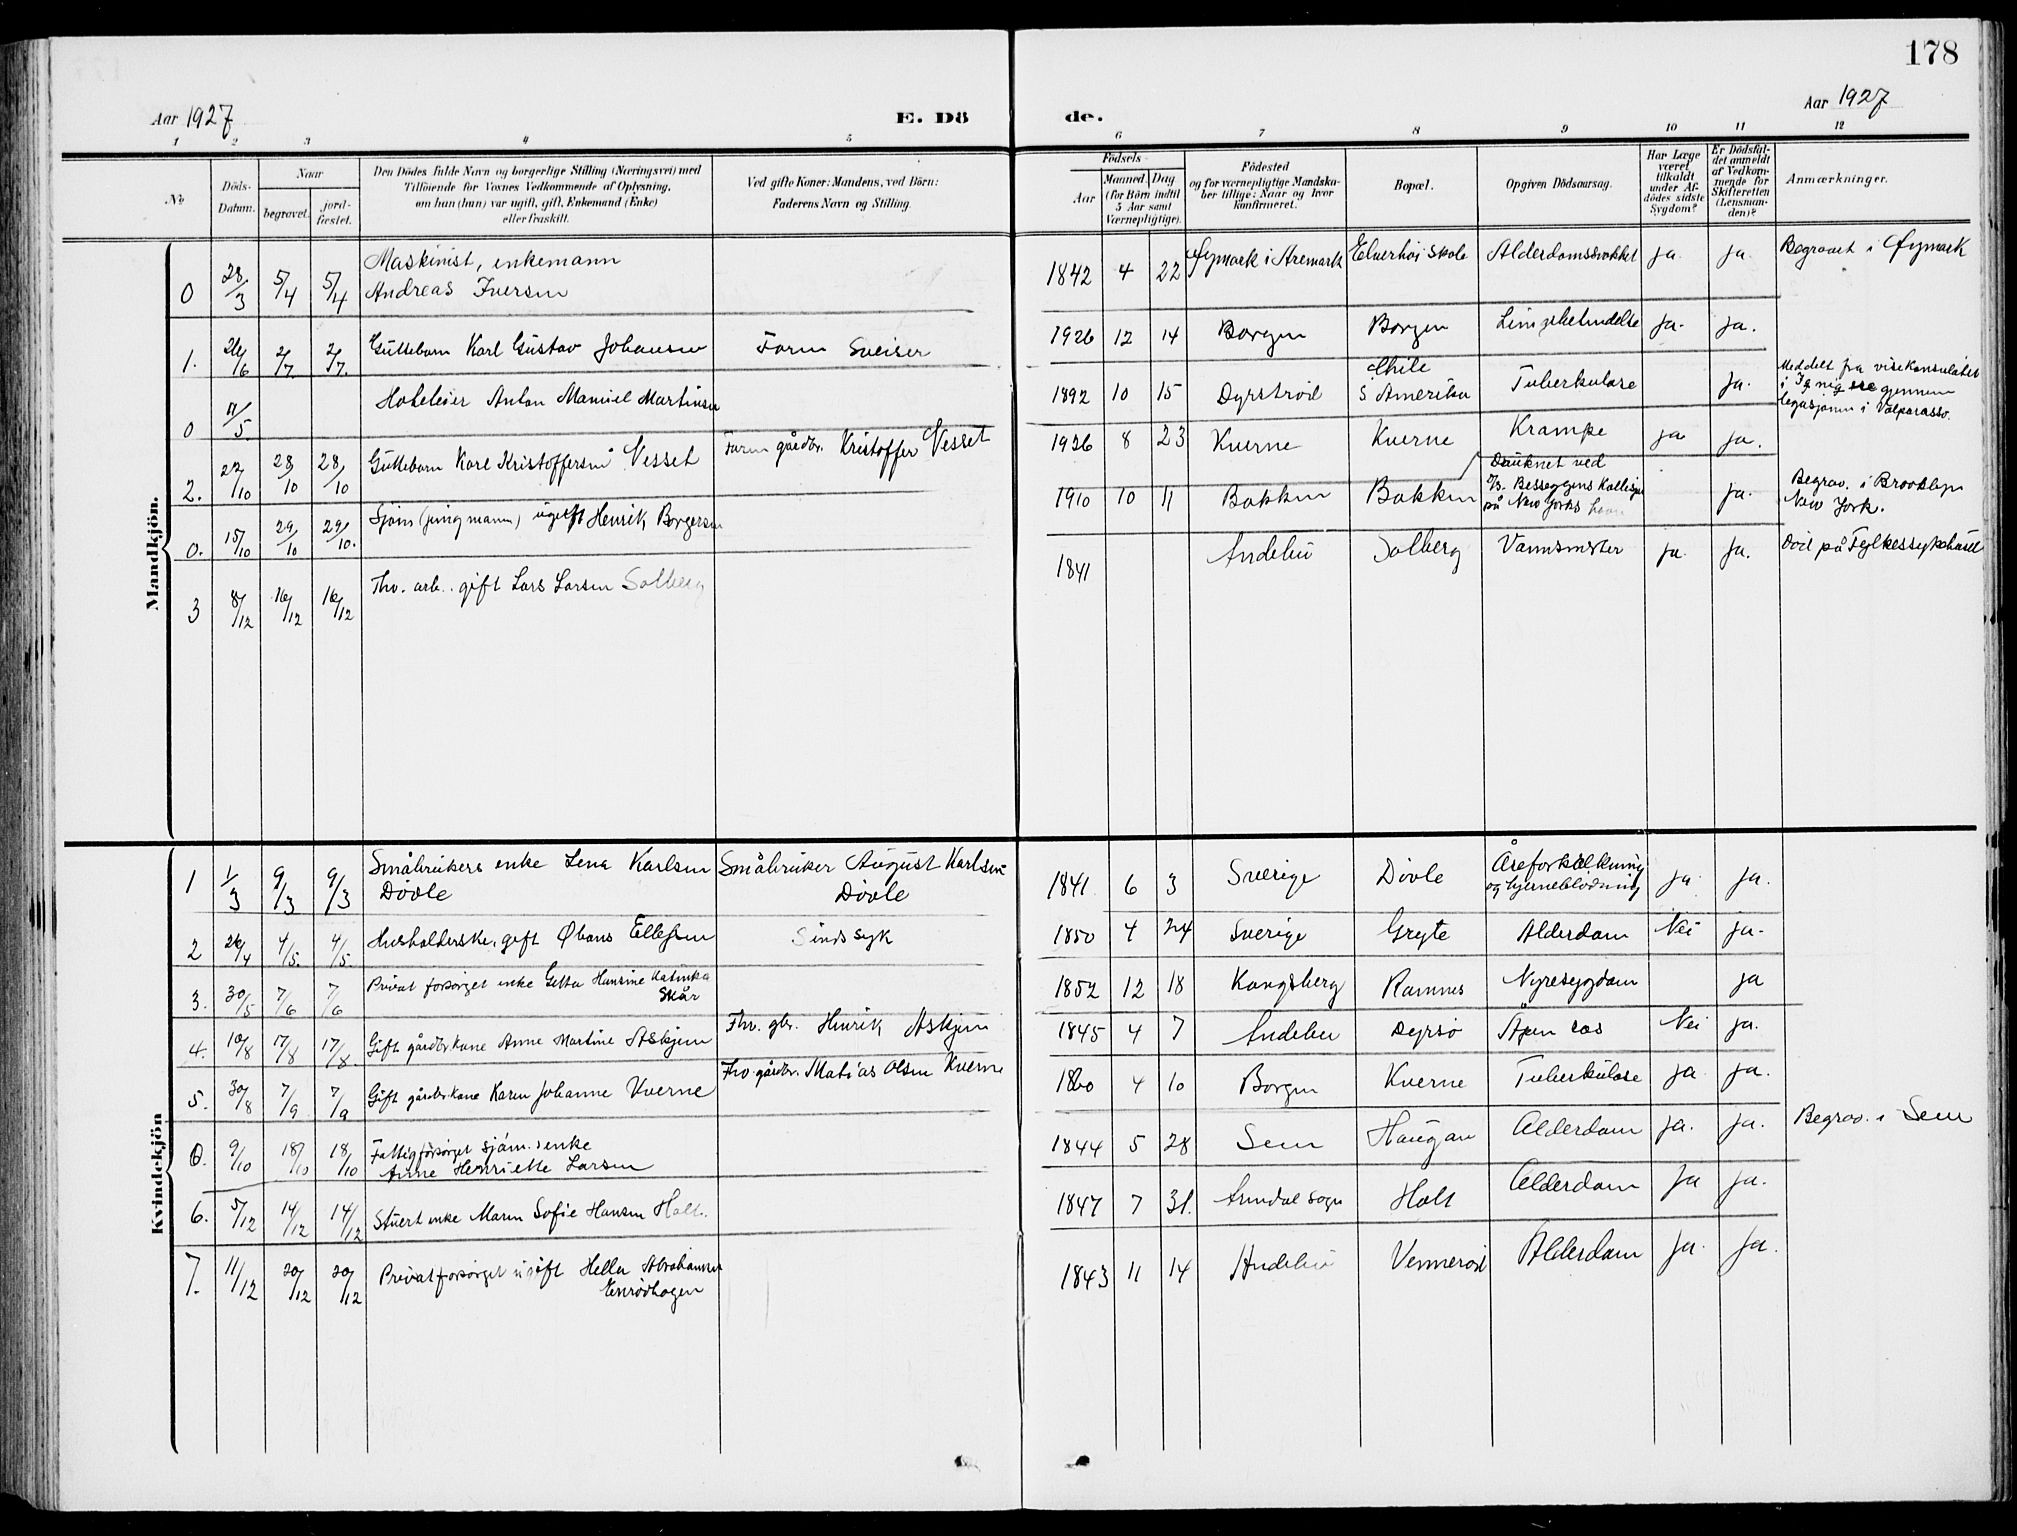 178
Aar 1927
E. Dö
de.
Aar 1927
1 2 3 4 5 6 7 8 9 10 11 12
No
Döds-Datum.
Naar
begravet.
jord-fæstet.
Den Dödes fulde Navn og borgerlige Stilling (Næringsvei) med
Tilföiende for Voxnes Vedkommende af Oplysning,
om han (hun) var ugift, gift, Enkemand (Enke)
eller fraskilt.
Ved gifte Koner: Mandens, ved Börn:
Faderens Navn og Stilling.
Födsels-
Aar
Maaned. Dag
(for Börn indtil
5 Aar samt
Værnepligtige).
Födested
og for værnepligtige Mandska-
ber tillige: Naar og hvor
konfirmeret.
Bopæl.
Opgiven Dödsaarsag.
Har Læge
været
tilkaldt
under Af-
dödes sidste
Sygdom?
Er Dödsfal-
det anmeldt
af Vedkom-
mende for
Skifteretten
(Lensman-
den)?
Anmærkninger.
Mandkjön.
0 28/3 5/4 5/4 Maskinist, enkemann
Andreas Iversen
1842 4 22 Øymark i Aremark Elverhöi skole Alderdomssvekket ja. ja. Begravet i Øymark
1. 26/6 2/7 2/7. Guttebarn Karl Gustav Johansen Farm Sveiser
1926 12 14 Borgen Borgen ja. ja.
0 11/5 Hoteleier Anton Manuel Martinsen
1892 10 15 Dyrsröd Chile
S Amerika Tuberkulose ja. Meddelt fra visekonsulatet
i gjennem
legasjonen i Valparasso.
2. 22/10 28/10 28/10 Guttebarn Karl Kristoffersen Vesset Farm gårdbr. Kristoffer Vesset
1926 8 23 Kverne Kverne Krampe ja ja.
0. 15/10 29/10 29/10. Sjöm (jungmann) ugift Henrik Borgersen
1910 10 11 Bakken Bakken Druknet ved
D/S. Besseggens Kollisjon
på New Yorks havn ja. Begrav. i Brooklyn
New York.
3 8/12 16/12 16/12 Fhv. arb. gift Lars Larsen Solberg
1841 Andebu Solberg Vannsmster ja. ja. Död på Fylkessykehuset
Kvindekjön
1 1/3 9/3 9/3 Småbrukers enke Lena Karlsen
Dövle Småbruker August Karlsen
Dövle
1841. 6 3 Sverige Dövle Åreforkalkning
og hjerneblödning ja. ja.
2 26/4 4/5. 4/5. Husholderske, gift Øbans Ellefsen Sindssyk
1850 4 24 Sverige Gryte Alderdom Nei ja.
3. 30/5 7/6 7/6 Privat forsörget enke Getta Hansine Katinka
Skår
1852 12 18 Kongsberg Ramnes Nyresygdom ja
4. 10/8 17/8 17/8. Gift gårdbrkone Anne Martine Askjem Fhv. gbr. Henrik Askjem
1845 4 7 Andebu Dyrsö Åpen sos Nei ja.
5. 30/8 7/9. 7/9 Gift gårdbrkone Karen Johanne Kverne Fhv. gårdbr. Matias Olsen Kverne
1860 4 10 Borgen Kverne Tuberkulose ja ja.
0. 9/10 18/10 18/10 Fattigforsörget sjöm.s enke
Anne Henriette Larsen
1844 5 28 Sem Haugan Alderdom ja. ja. Begrav. i Sem
6. 5/12 14/12 14/12 Stuert enke Maren Sofie Hansen Holt.
1847 7 31. Arendal sogn Holt Alderdom ja ja.
7. 11/12 20/12 20/12 Privatforsörget ugift Hella Abrahamsen
Enrödhagen
1843 11 14 Andebu Vennerød Alderdom ja. ja.